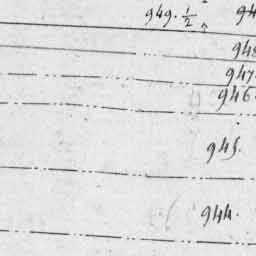 949. 1/2 94
948
947.
946.
945.
944.